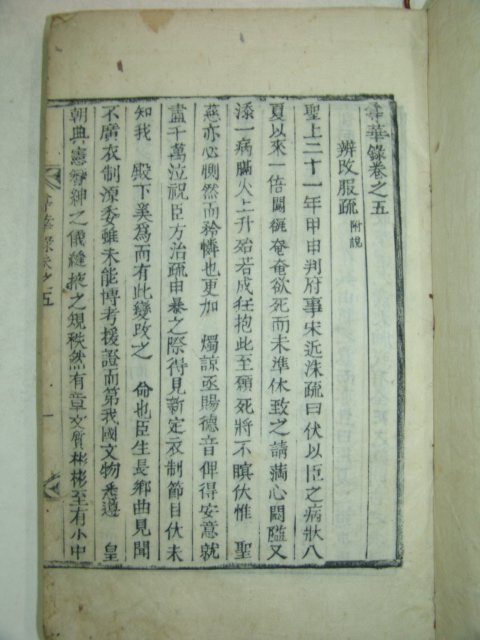 尊華錄卷之五
辨改服疏 附說
聖上二十一年甲申判府事宋近洙疏曰伏以臣之病狀入
夏以來一倍奄奄欲死而未準休致之請滿心悶隘又
添一病火上升殆若成狂抱此至願死將不瞑伏惟 聖
慈亦必惻然而矜憐也更加 燭諒亟賜德音俾得安意就
盡千萬泣祝臣方治疏申暴之際得見新定衣制節目伏未
知我 殿下奚爲而有此變改之 命也臣生長鄉曲見聞
不廣衣制源委雖未能博考援證而第我國文物悉遵 皇
朝典憲簪紳之儀縫掖之規秩然有章文質彬彬至有小中
尊華錄卷之五